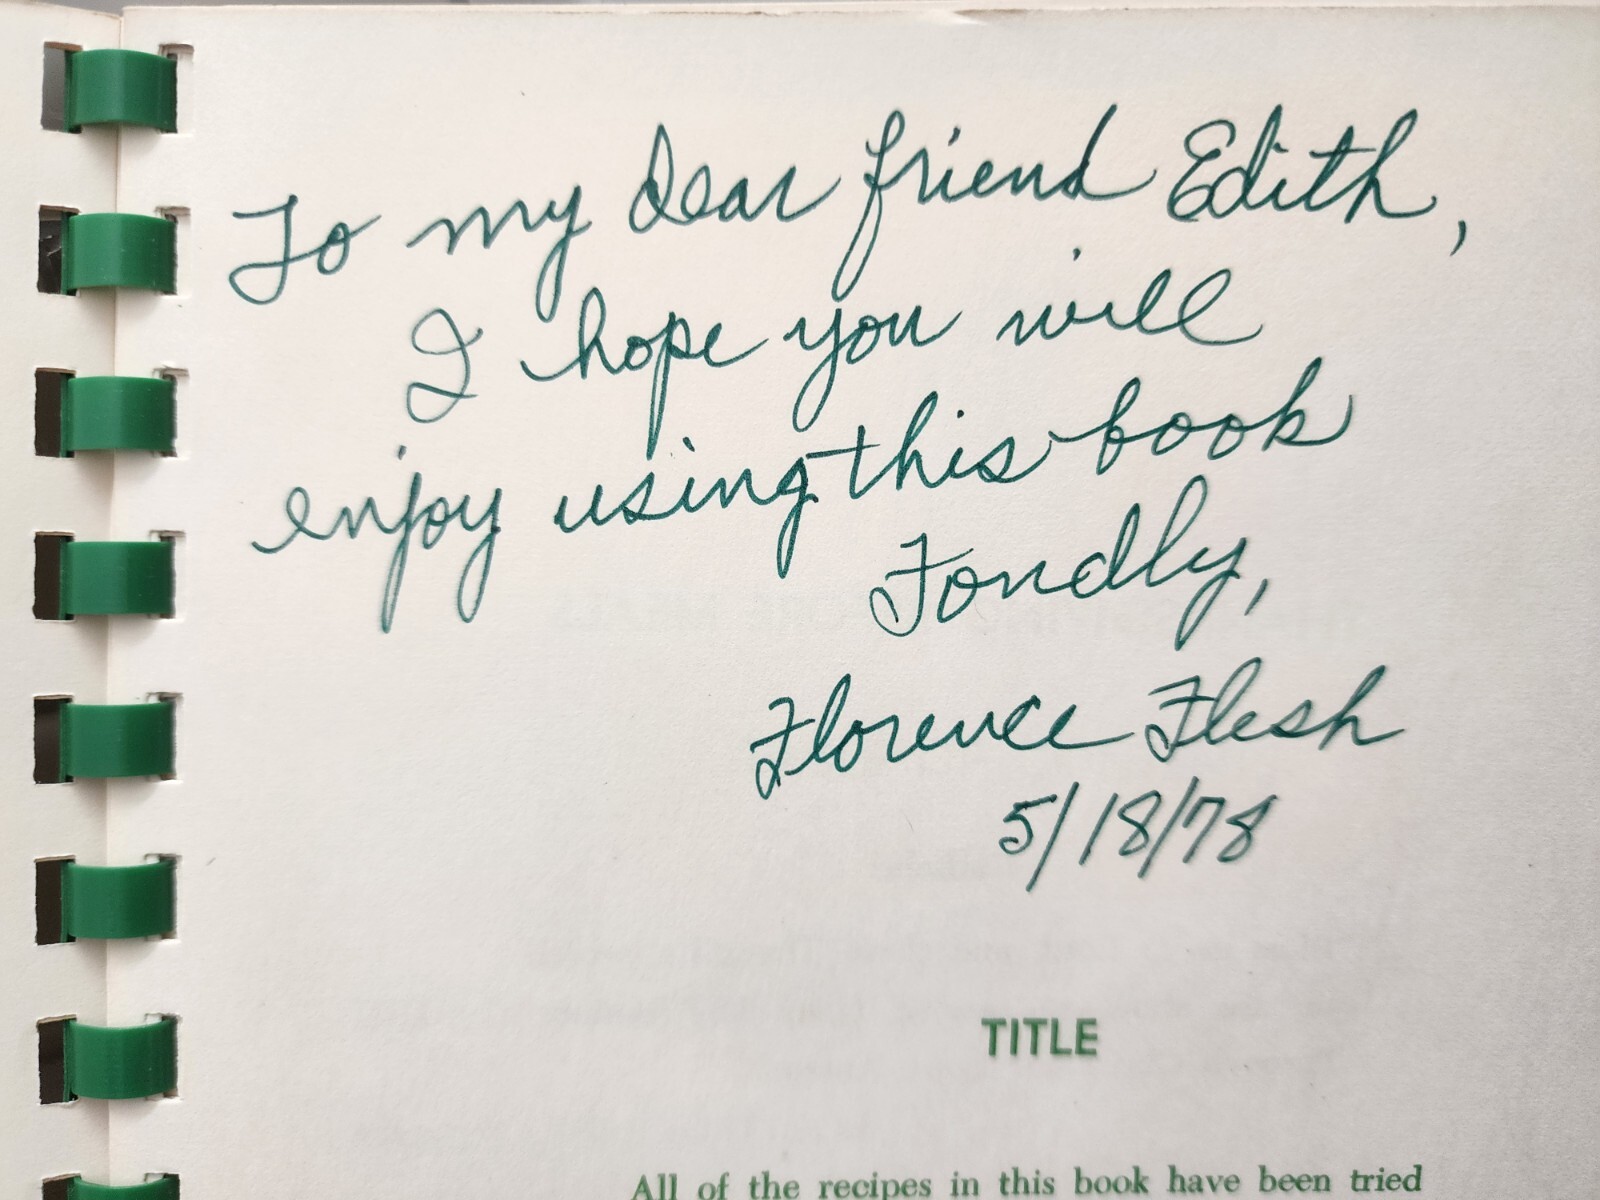 To my dear friend Edith,
I hope you will
enjoy using this book
Fondly,
Florence Flesh
5/18/78
TITLE
All of the recipes in this book have been tried